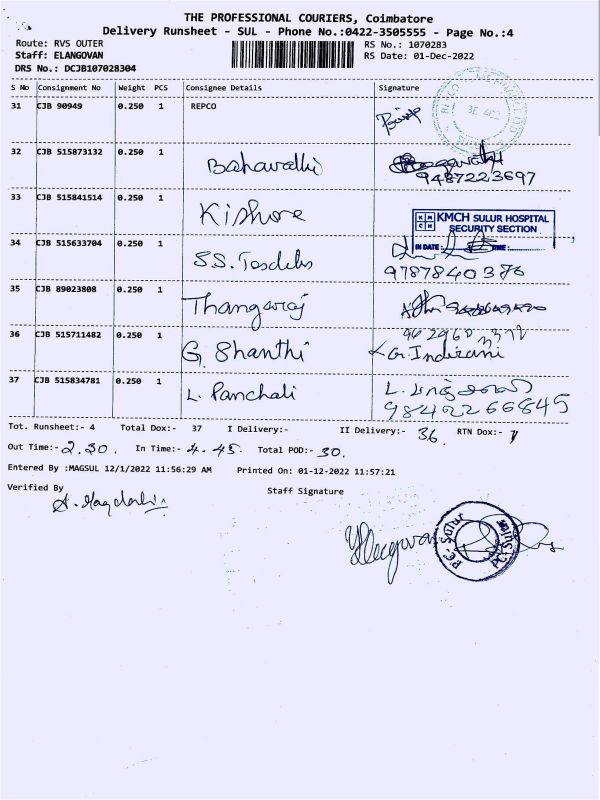 THE PROFESSIONAL COURIERS, Coimbatore
Delivery Runsheet - SUL - Phone No.:0422-3505555 - Page No.:4
Route: RVS OUTER RS No.: 1070283
Staff: ELANGOVAN RS Date: 01-Dec-2022
DRS No.: DCJB107028304
S No Consignment No Weight PCS Consignee Details Signature
31 CJB 90949 0.250 1 REPCO
32 CJB 515873132 0.250 1 Bahavathi
9487223697
33 CJB 515841514 0.250 1 Kishore
KMCH SULUR HOSPITAL
SECURITY SECTION
IN DATE: TIME:
34 CJB 515633704 0.250 1 S.S.
9787840376
35 CJB 89023808 0.250 1 Thangaraj
36 CJB 515711482 0.250 1 G. Shanthi G. Indirani
37 CJB 515834781 0.250 1 L. Panchali L.
9842266845
Tot. Runsheet:- 4 Total Dox:- 37 I Delivery:- II Delivery:- 36 RTN Dox:- 1
Out Time:- 2.30. In Time:- 4.45. Total POD:- 30.
Entered By :MAGSUL 12/1/2022 11:56:29 AM Printed On: 01-12-2022 11:57:21
Verified By Staff Signature